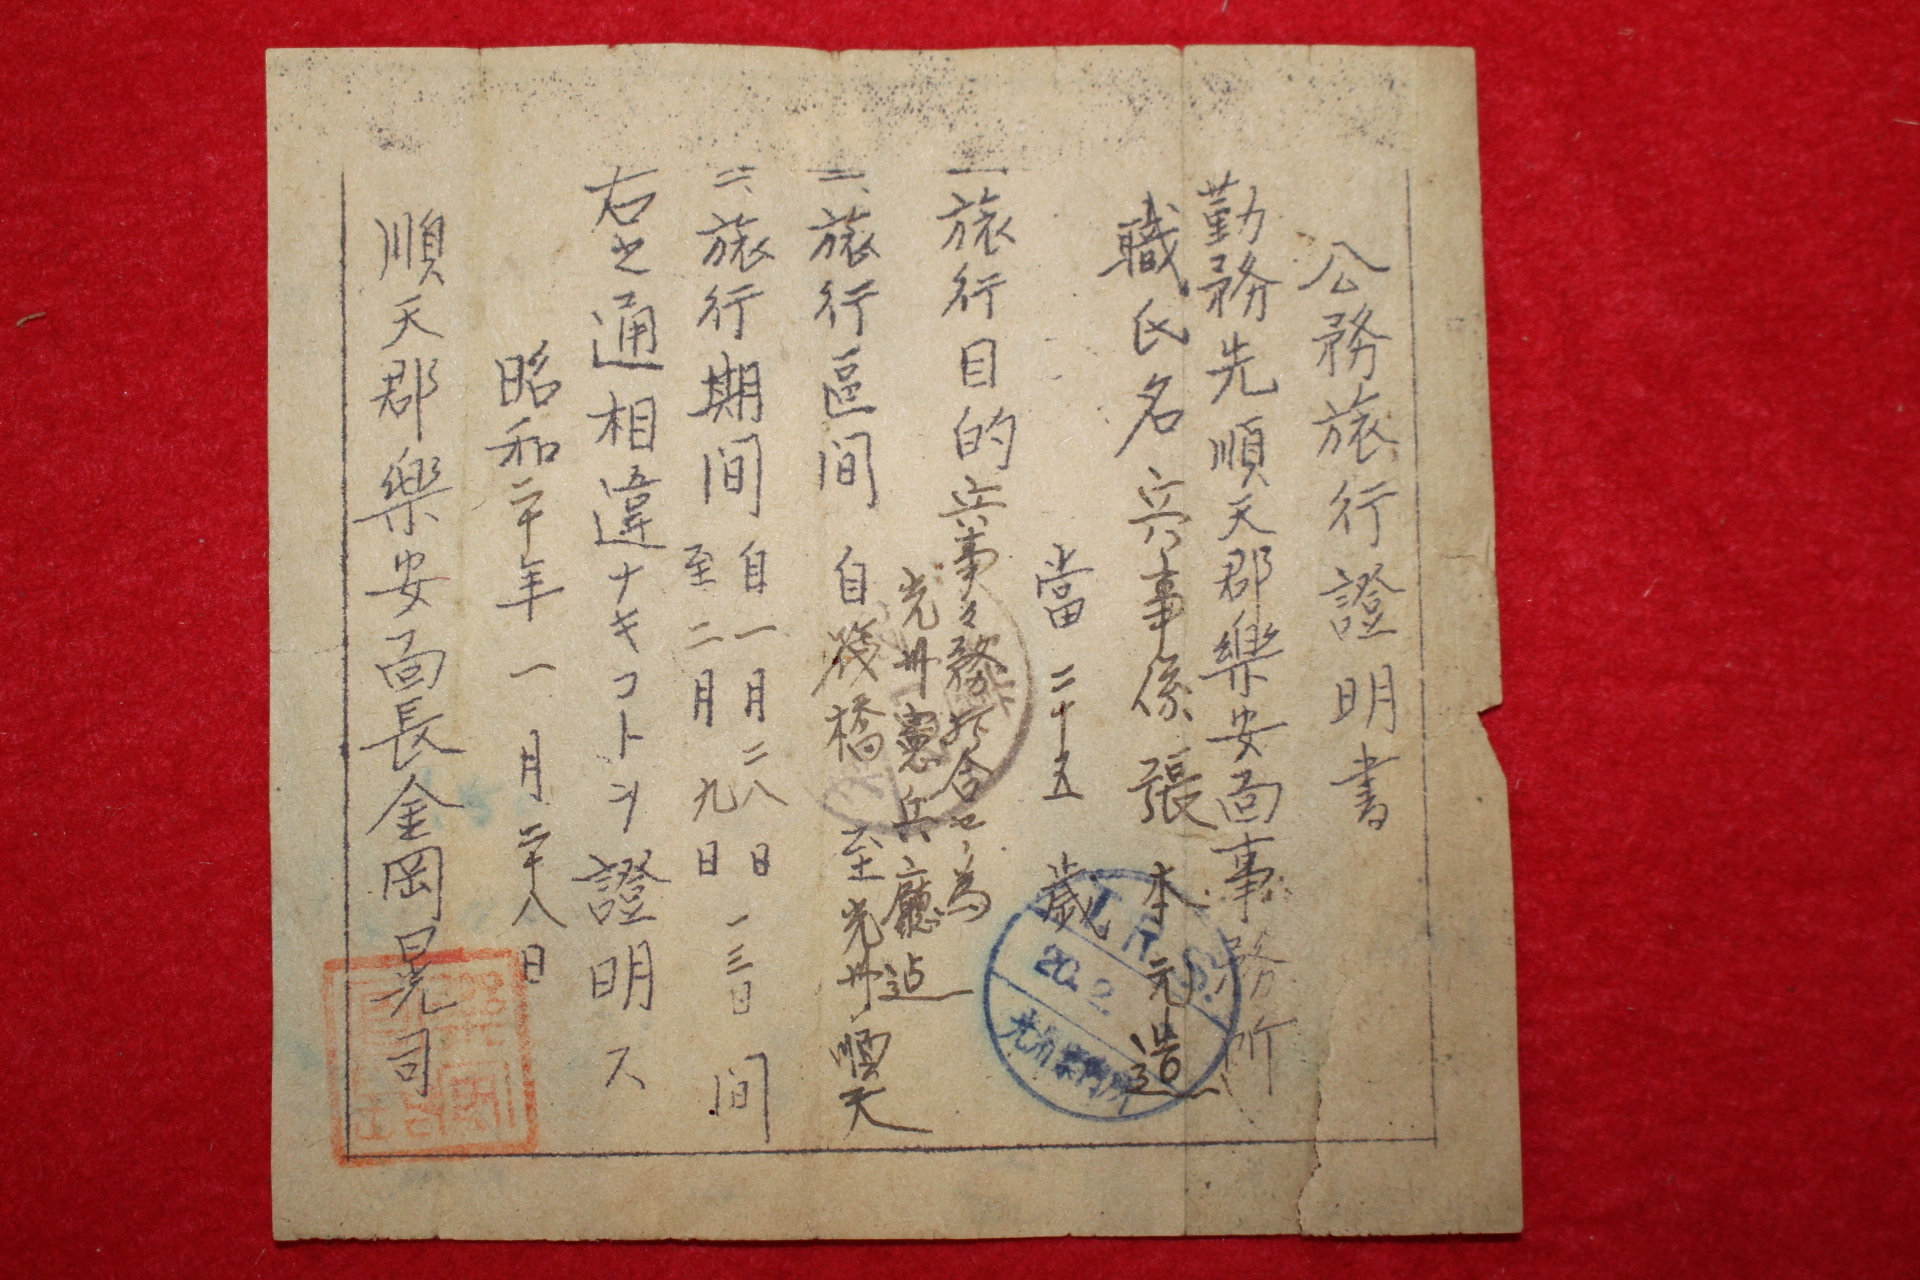 公務旅行證明書
勤務先 順天郡樂安面事務所
職氏名 兵事係 張本元造
當二十五歲
一、旅行目的 兵事々務打合セノ為
光州憲兵廳迠
一、旅行區间 自筏橋 至光州、順天
一、旅行期间 自一月二八日
至二月九日
一三日间
右之通相違ナキコトヲ證明ス
昭和二十年一月二十八日
順天郡樂安面長金岡晃司
20. 2